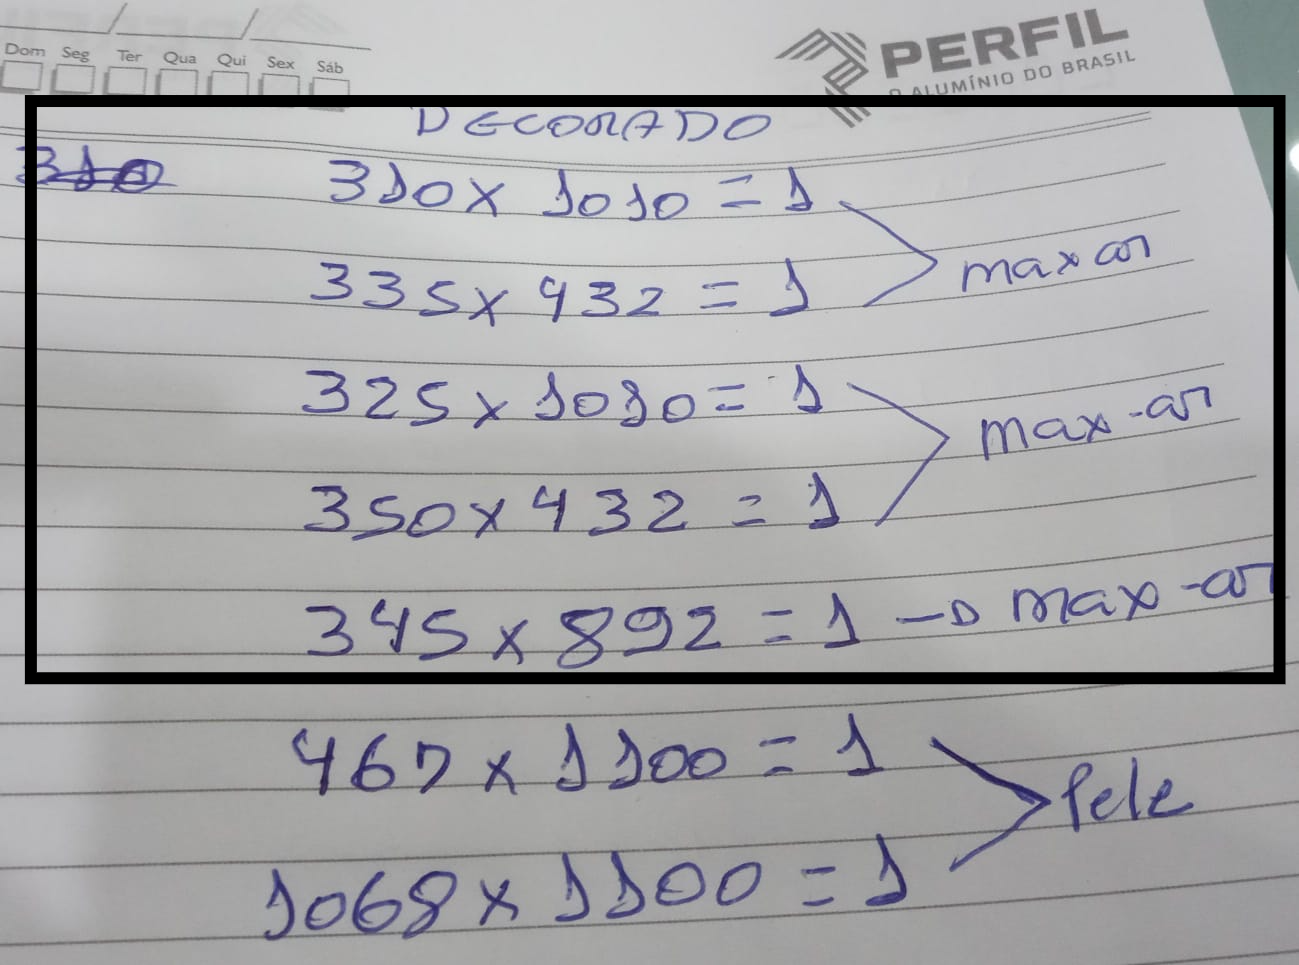 Dom Seg Ter Qua Qui Sex Sáb
PERFIL
O ALUMÍNIO DO BRASIL
DECORADO
310
310 x 1010 = 1
max ar
335 x 432 = 1
325 x 1010 = 1
max-ar
350 x 432 = 1
345 x 892 = 1 → max-ar
467 x 1100 = 1
Pele
1068 x 1100 = 1